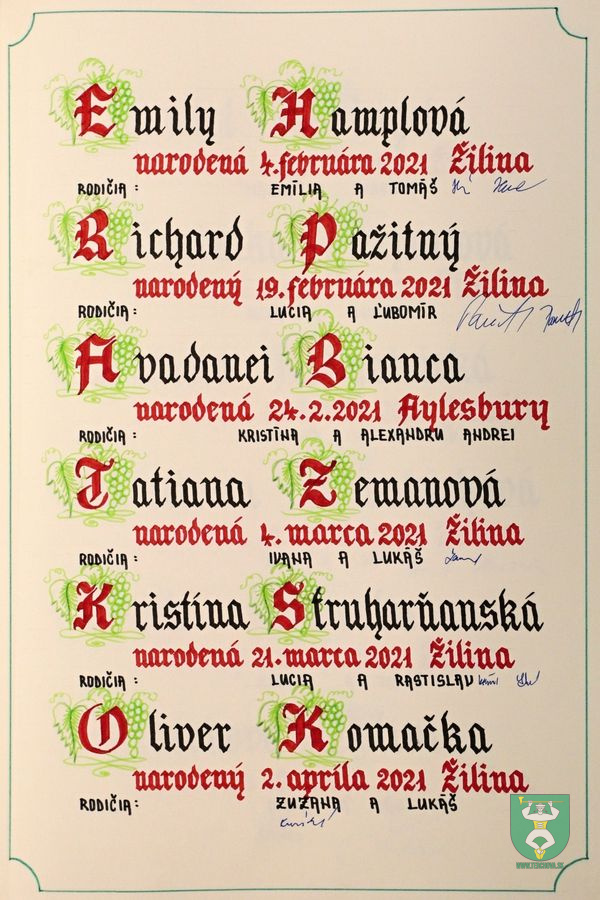 Emily Hamplová
narodená 4. februára 2021 Žilina
RODIČIA: EMÍLIA A TOMÁŠ
Richard Pažitný
narodený 19. februára 2021 Žilina
RODIČIA: LUCIA A ĽUBOMÍR
Avadanei Bianca
narodená 24.2.2021 Aylesbury
RODIČIA: KRISTÍNA A ALEXANDRU ANDREI
Tatiana Zemanová
narodená 4. marca 2021 Žilina
RODIČIA: IVANA A LUKÁŠ
Kristína Struharňanská
narodená 21. marca 2021 Žilina
RODIČIA: LUCIA A RASTISLAV
Oliver Komačka
narodený 2. apríla 2021 Žilina
RODIČIA: ZUZANA A LUKÁŠ
WWW.TERCHOVA.SK